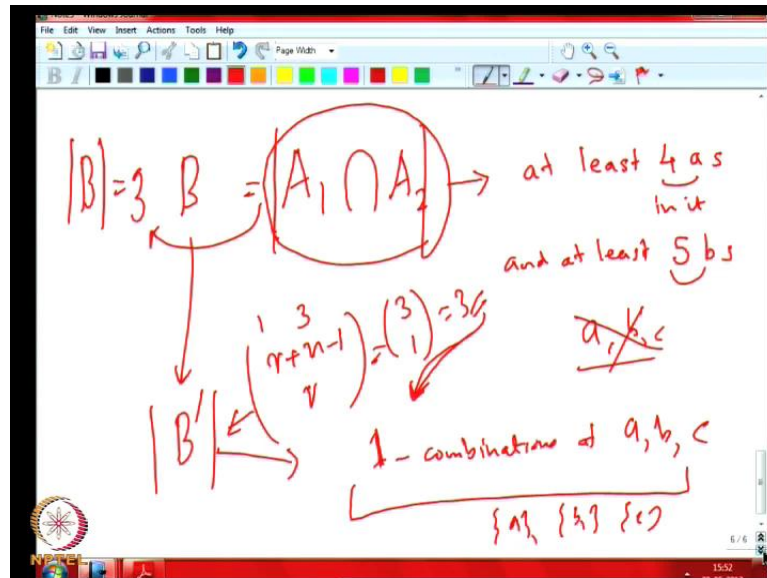 File Edit View Insert Actions Tools Help
Page Width
B I
|B| = 3 B = |A₁ ∩ A₂| → at least 4 a s
in it
and at least 5 b s
a, b, c
1 3
( r+n-1
r ) = ( 3
1 ) = 3
|B'| → 1 - combinations of a, b, c
{a}, {b} {c}
6 / 6
NPTEL
15:52